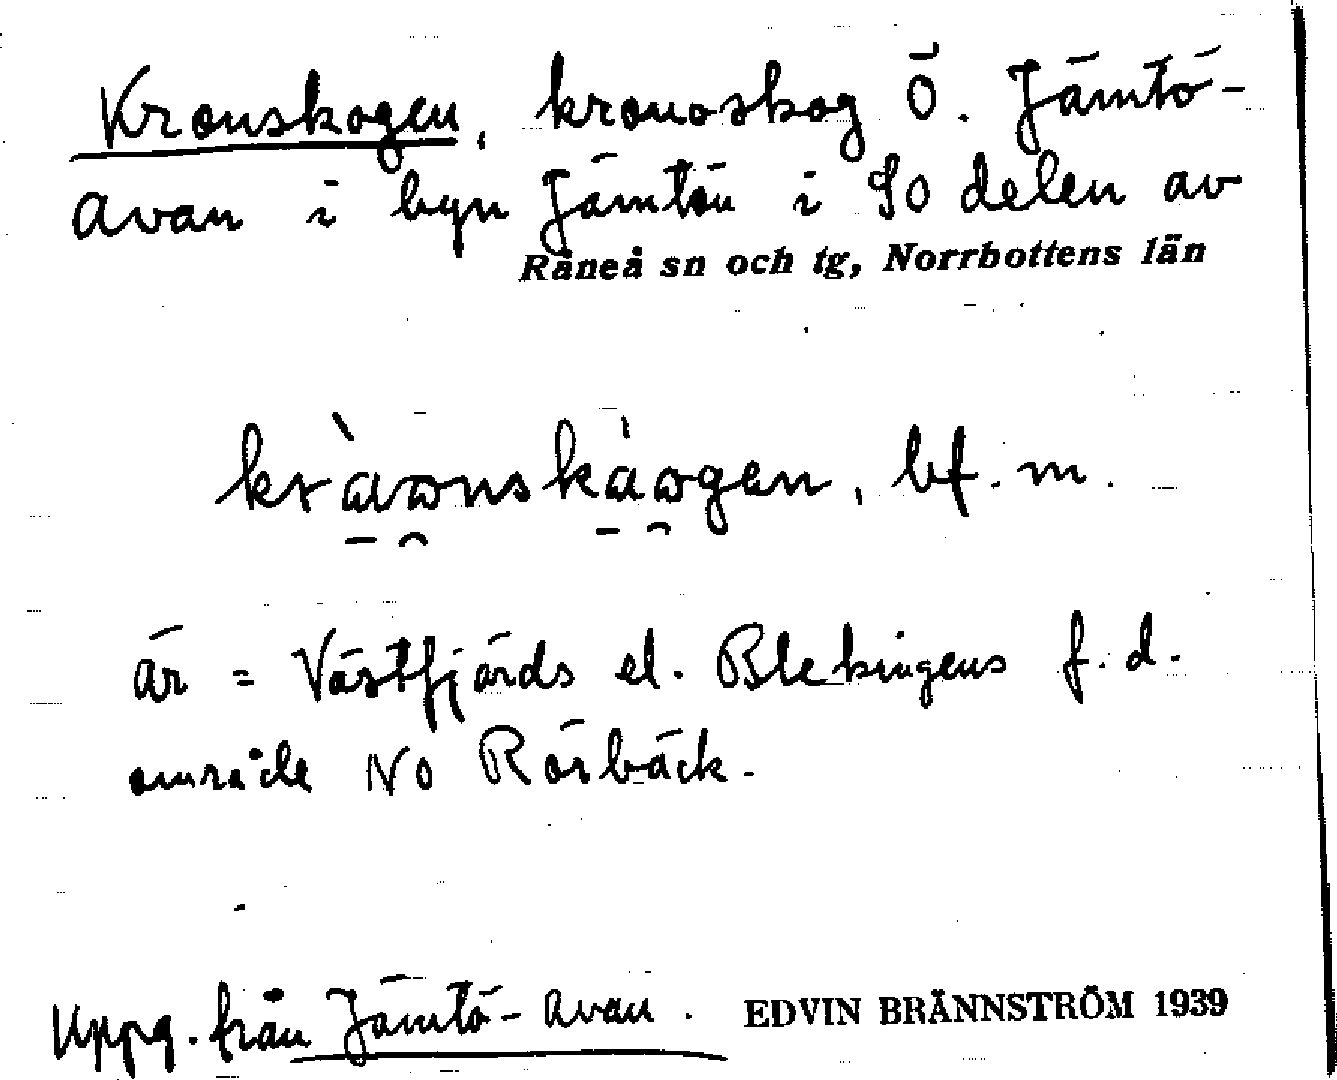 Kronskogen, kronoskog Ö. Jämtö-
avan i byn Jämtön i SO delen av
Råneå sn och tg, Norrbottens län
kràωnskàωgen, bf. m.
är = Västfjärds el. Blekingens f. d.
område NO Rörbäck.
Uppg. från Jämtö-avan. EDVIN BRÄNNSTRÖM 1939